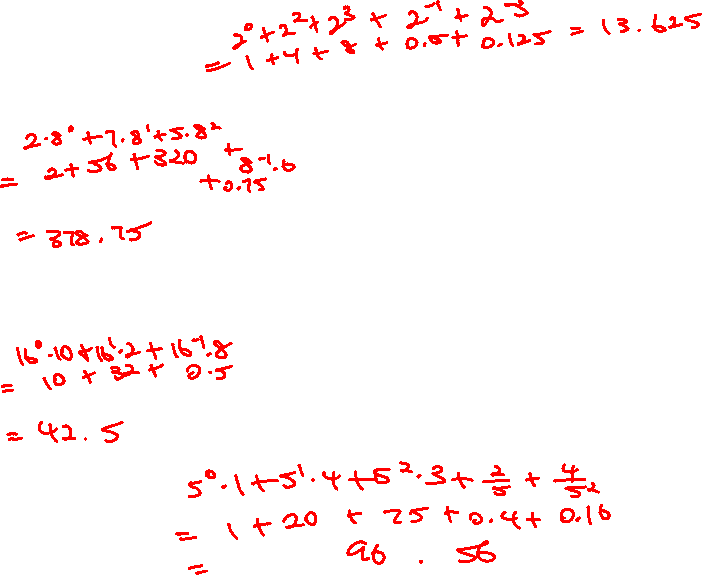 2⁰+2²+2³ + 2⁻¹ + 2⁻³
= 1+4+8+0.5+0.125 = 13.625
2·8⁰+7·8¹+5·8² + 8⁻¹·6
= 2+56+320 +0.75
= 378.75
16⁰·10+16¹·2+16⁻¹·8
= 10 + 32+ 0.5
= 42.5
5⁰·1+5¹·4+5²·3+2/5+4/5²
= 1+20+75+0.4+0.16
= 96.56